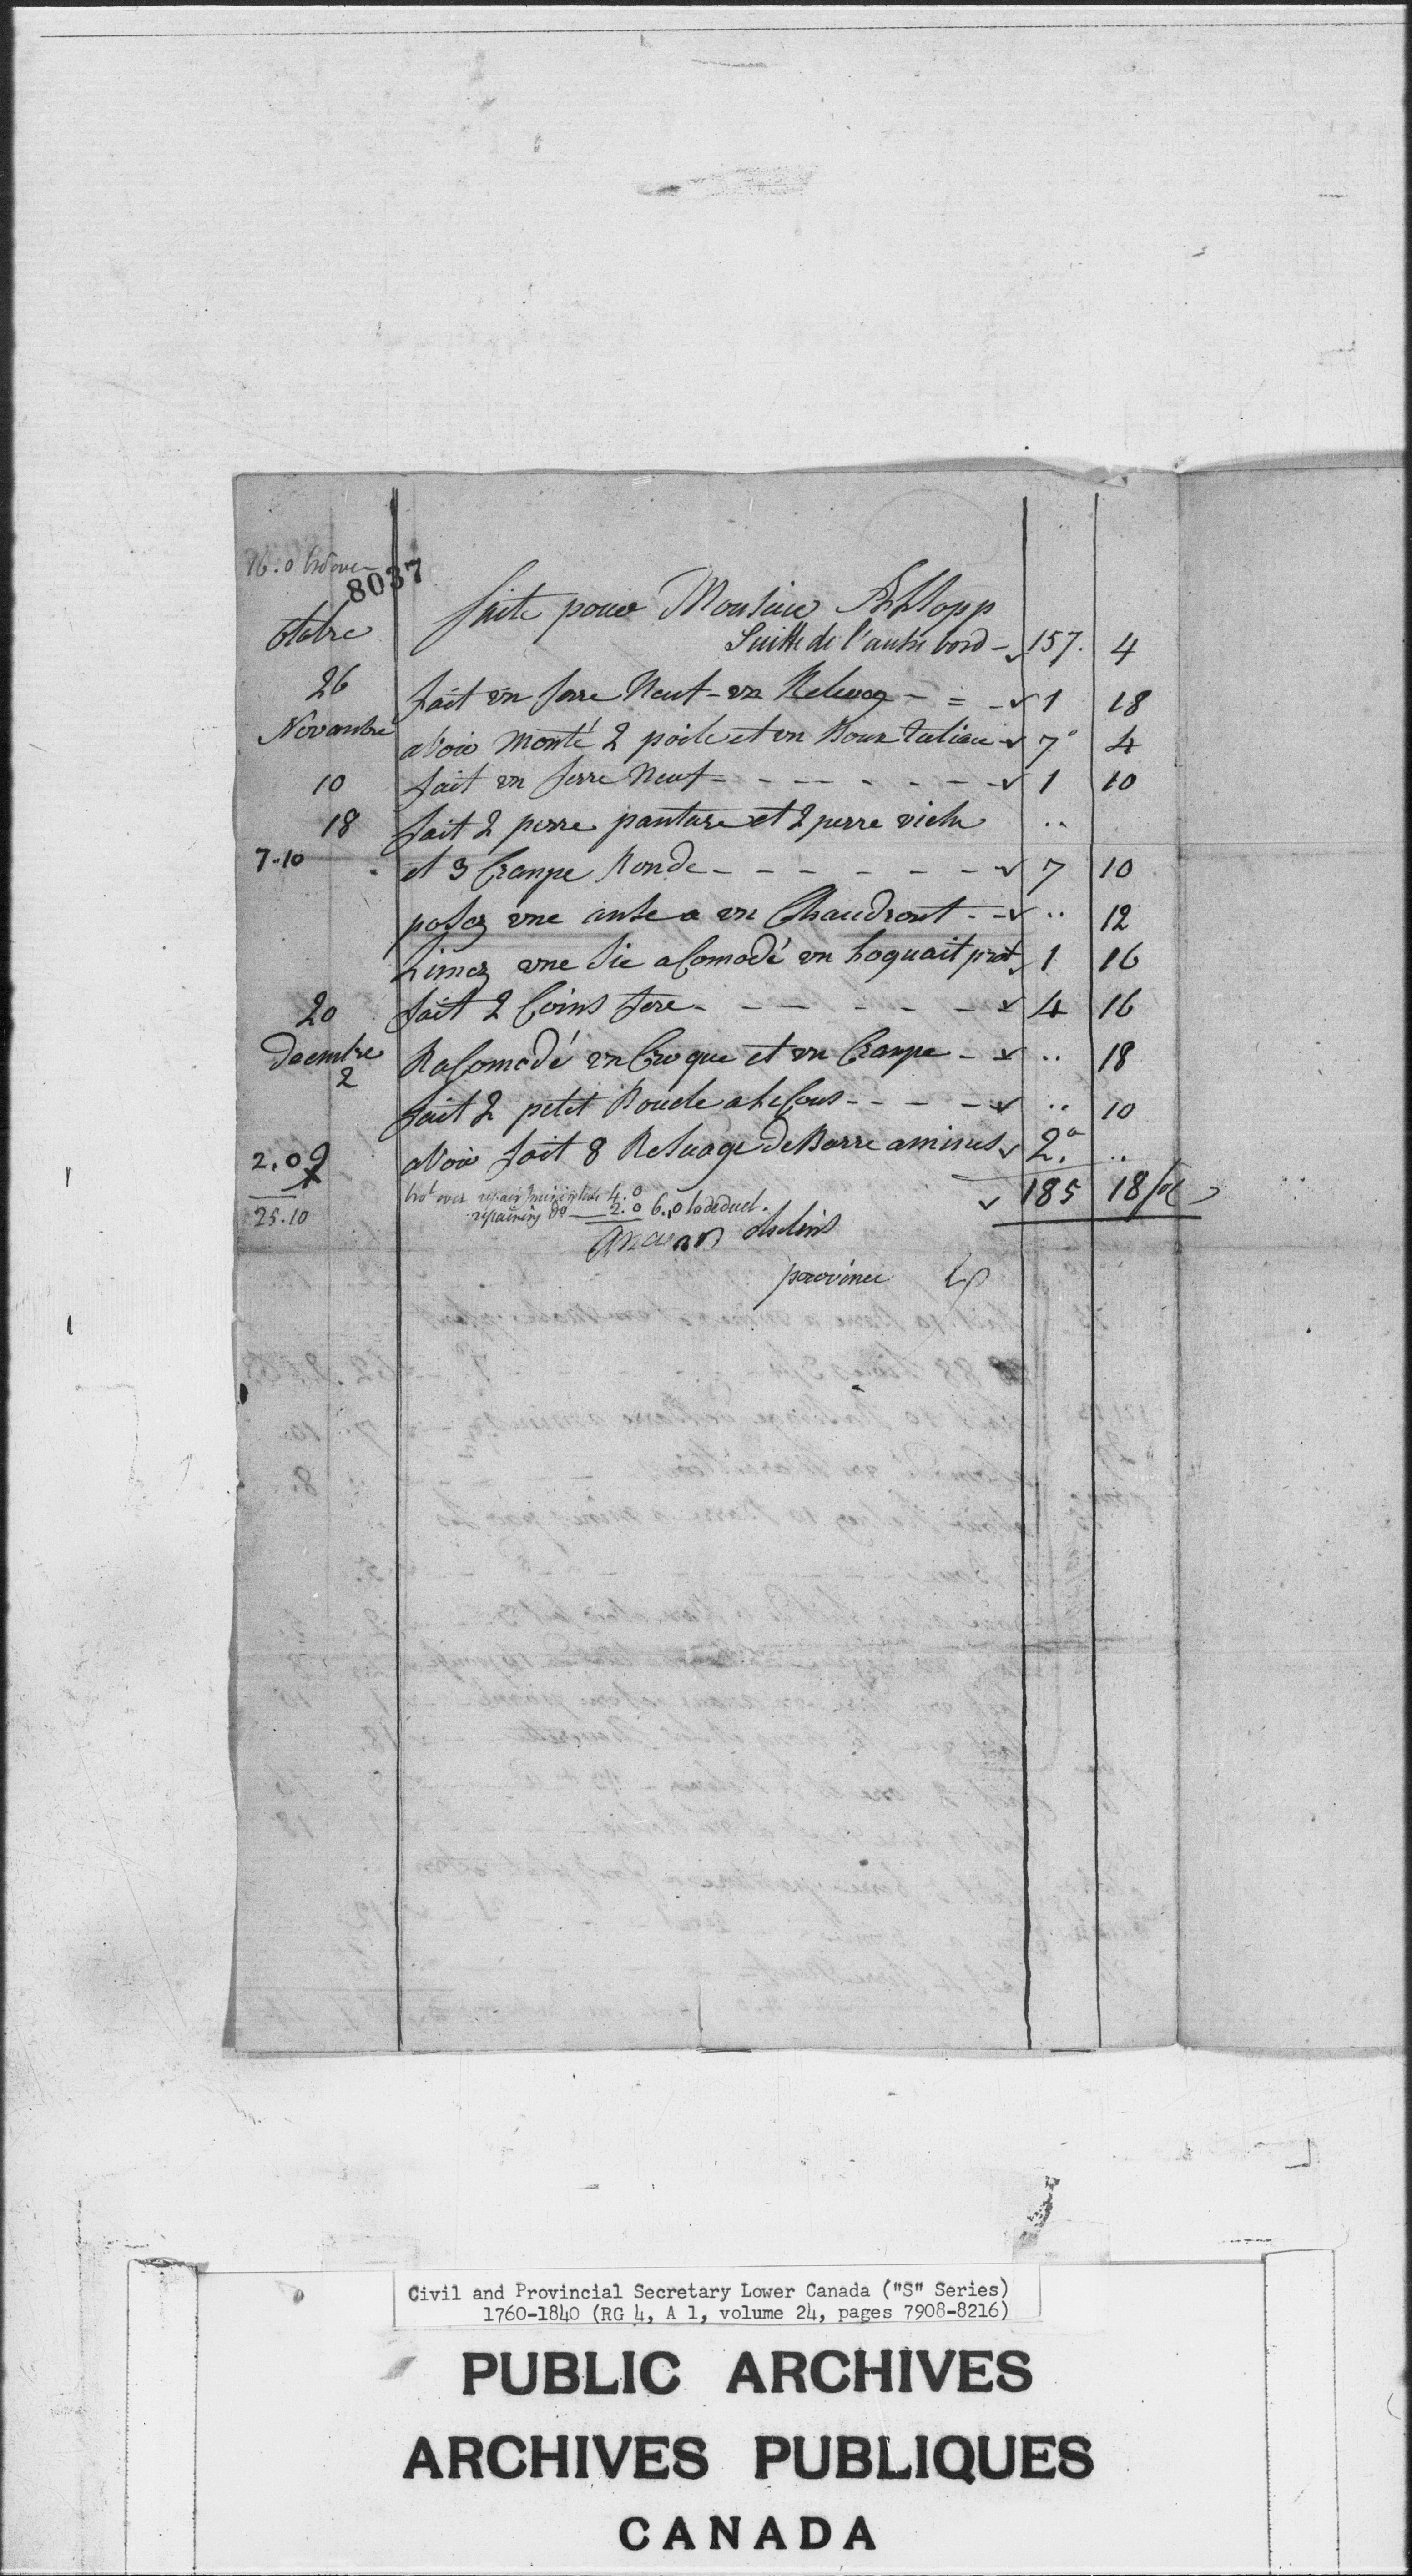 16.0 bro over
8037
faite pour Monsieur Allsopp
Octobre Suitte de l'autre bord - 157. 4
26 fait un ferre Neuf - un Relevez - = - 1 18
Novambre avoir monté 2 poile et un 7 4
10 fait un ferre Neuf - - - - - - - 1 10
18 fait 2 perre panture et 2 perre viele ..
7-10 et 3 Crampe Ronde - - - - - - 7 10
posez une anse a un Chaudront - - .. 12
Limez une Sie acomodé un Loquait prot 1 16
20 fait 2 Coins fere - - - - - - 4 16
Decembre 2 Racomodé un Croque et un Crampe - - .. 18
fait 2 petit Boucle - - - - .. 10
2.0 avoir fait 8 Resuage de Barre a mines 2. ..
25.10 brot over repair 4.0 185 18
repairing do 2.0 6.0 to deduct.
province
Civil and Provincial Secretary Lower Canada ("S" Series)
1760-1840 (RG 4, A 1, volume 24, pages 7908-8216)
PUBLIC ARCHIVES
ARCHIVES PUBLIQUES
CANADA